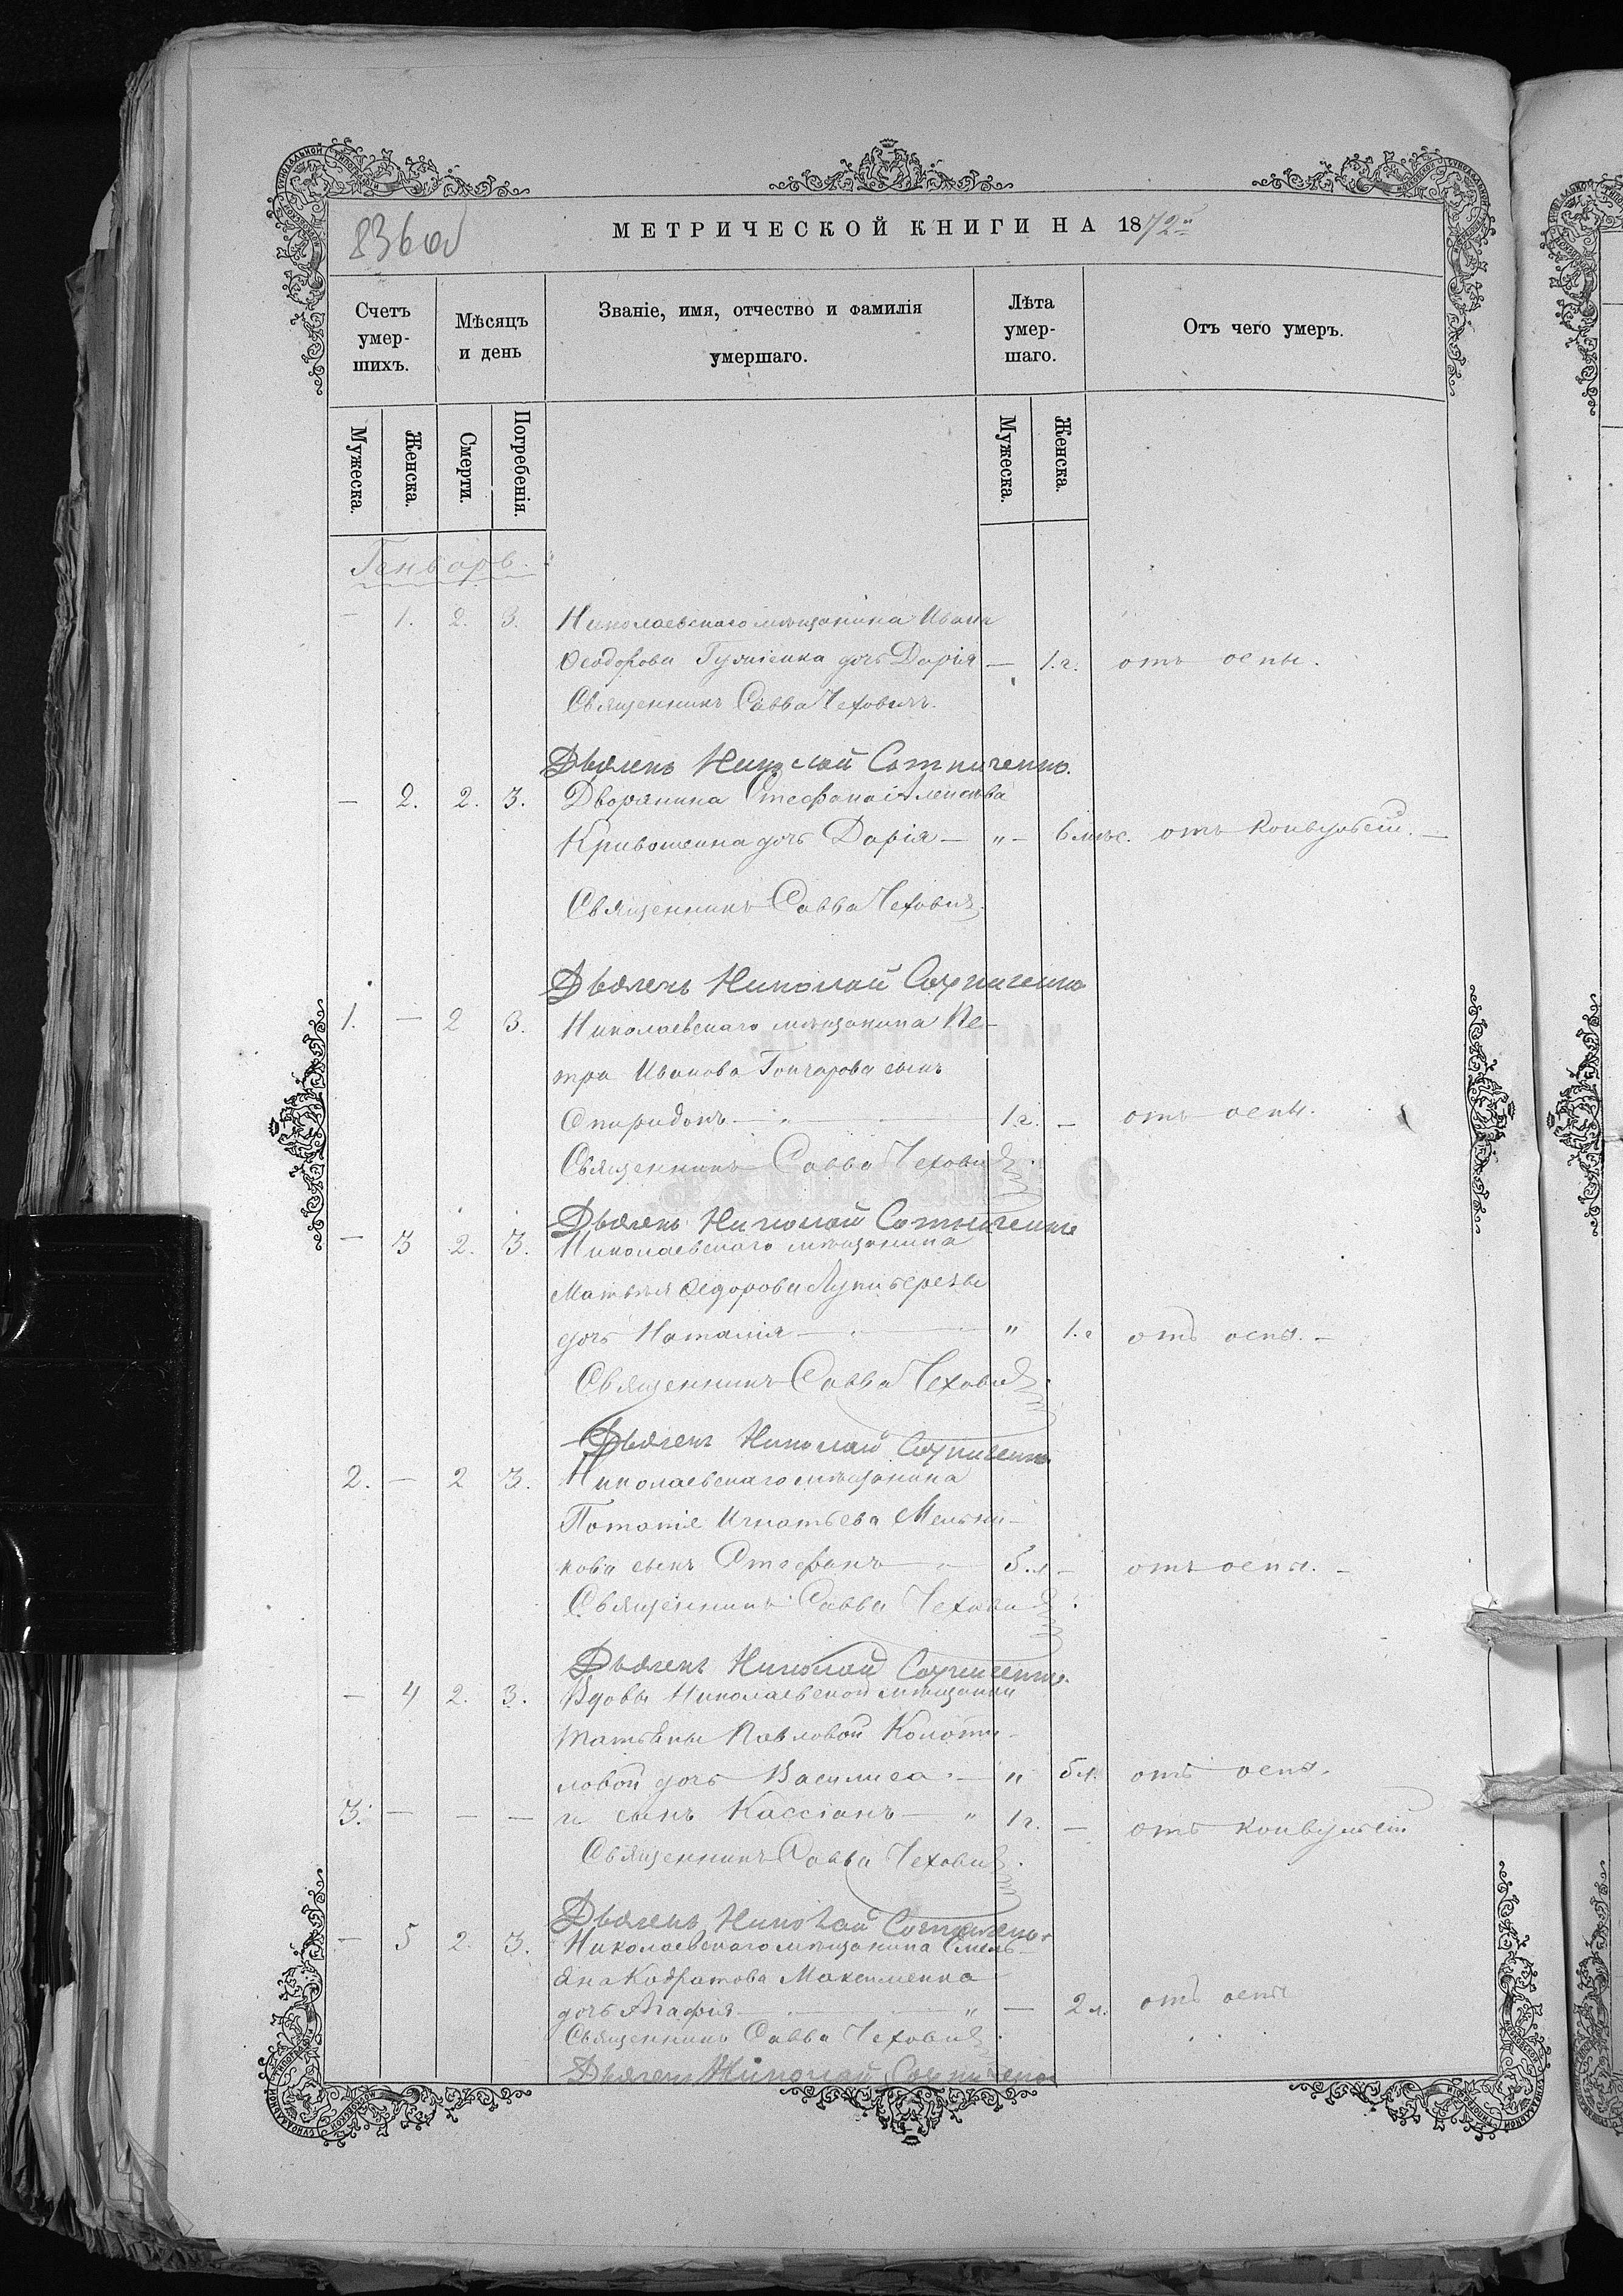 836об
МЕТРИЧЕСКОЙ КНИГИ НА 1872й
Счетъ умер-шихъ.
Мѣсяцъ и день
Званіе, имя, отчество и фамилія умершаго.
Лѣта умер-шаго.
Отъ чего умеръ.
Мужеска.
Женска.
Смерти.
Погребенія.
Мужеска.
Женска.
Генварь.
— 1. 2. 3. Николаевскаго мѣщанина Ивана
Ѳеодорова дочь Дарія — 1.г. отъ оспы.
Священникъ Савва Чеховичъ.
Дьячекъ Николай Сотниченко.
— 2. 2. 3. Дворянина Стефана Алексѣева
Кривошеина дочь Дарія — „ — 6 мѣс. отъ конвульсій. —
Священникъ Савва Чеховичъ.
Дьячекъ Николай Сотниченко
1. — 2 3. Николаевскаго мѣщанина Пе-
тра Иванова Гончарова сынъ
Спиридонъ — „ — 1г. — отъ оспы.
Священникъ Савва Чеховичъ.
Дьячекъ Николай Сотниченко
— 3 2. 3. Николаевскаго мѣщанина
Матвѣя Ѳедорова
дочь Наталія — „ 1.г отъ оспы. —
Священникъ Савва Чеховичъ.
Дьячекъ Николай Сотниченко
2. — 2 3. Николаевскаго мѣщанина
Потапія Игнатьева Мельни-
кова сынъ Стефанъ — 5.л — отъ оспы. —
Священникъ Савва Чеховичъ.
Дьячекъ Николай Сотниченко.
— 4 2. 3. Вдовы Николаевской мѣщанки
Татьяны Павловой Колоти-
ловой дочь Василиса — „ 5л. отъ оспы.
3. — — — и сынъ Кассіанъ — „ 1г. — отъ конвульсій
Священникъ Савва Чеховичъ.
Дьячекъ Николай Сотниченко
— 5 2. 3. Николаевскаго мѣщанина Емель-
яна Кодратова Максименка
дочь Агафія — „ — 2 л. отъ оспы
Священникъ Савва Чеховичъ.
Дьячекъ Николай Сотниченко